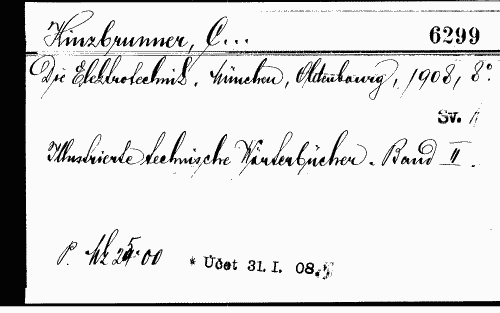 Kinzbrunner, C... 6299
Die Elektrotechnik. München, Oldenbourg, 1908, 8°.
Sv.
Illustrierte technische Wörterbücher. Band II.
P. 25.00 * Účet 31. I. 08.